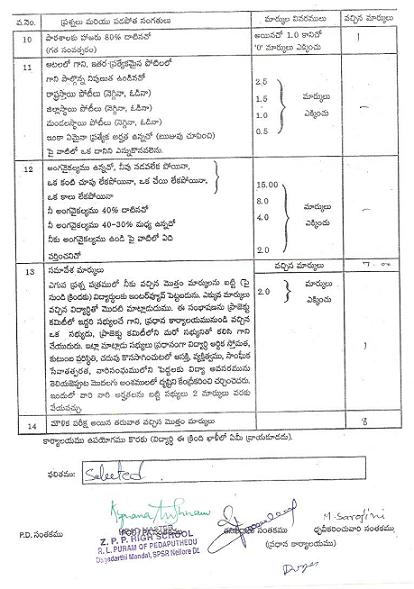 వ.నెం. ప్రశ్నలు మరియు పడపోత సంగతులు మార్కుల వివరములు వచ్చిన మార్కులు
10 పాఠశాలకు హాజరు 80% దాటినచో అయినచో 1.0 కానిచో 1
(గత సంవత్సరం) '0' మార్కులు ఎక్కించు
11 ఆటలలో గాని, ఇతర ప్రత్యేకమైన పోటిలలో
గాని పాల్గొన్న నిపుణత ఉండినచో 2.5
రాష్ట్రస్థాయి పోటీలు (నెగ్గినా, ఓడినా) 1.5 మార్కులు
జిల్లాస్థాయి పోటీలు (నెగ్గినా, ఓడినా) 1.0 ఎక్కించు
మండలస్థాయి పోటీలు (నెగ్గినా, ఓడినా) 0.5
ఇంకా ఏమైనా ప్రత్యేక అర్హత ఉన్నచో (ఋజువు చూపించి)
పై వాటిలో ఒక దానిని ఎన్నుకొనవలెను.
12 అంగవైకల్యము ఉన్నచో, నీవు నడవలేక పోయినా,
ఒక కంటి చూపు లేకపోయినా, ఒక చేయి లేకపోయినా, 15.00
ఒక కాలు లేకపోయినా 8.0 మార్కులు
నీ అంగవైకల్యము 40% దాటినచో 4.0 ఎక్కించు
నీ అంగవైకల్యము 40-30% మధ్య ఉన్నచో
నీకు అంగవైకల్యము ఉండి పై వాటిలో ఏది 2.0
వర్తించనిచో
13 సమావేశ మార్కులు వచ్చిన మార్కులు
ఎగువ ప్రశ్న పత్రములో నీకు వచ్చిన మొత్తం మార్కులను బట్టి (పై
సుండి క్రిందకు) విద్యార్థులకు ఇంటర్వ్యూకే పెట్టబడును. ఎక్కువ మార్కులు 2.0 మార్కులు
వచ్చిన విద్యార్థితో మొదటి మాట్లాడుదుము. ఈ సంభాషణను ప్రాజెక్టు ఎక్కించు 1
కమిటీలో ఇద్దరి సభ్యులచే గాని, ప్రధాన కార్యాలయమునుండి వచ్చిన
ఒక సభ్యుడు, ప్రాజెక్టు కమిటీలోని మరో సభ్యునితో కలిసి గాని
చేయుదురు. ఇట్లా మాట్లాడు సభ్యులు ప్రధానంగా విద్యార్థి ఆర్థిక స్తోమత,
కుటుంబ పరిస్థితి, చదువు కొనసాగించుటలో ఆసక్తి, వ్యక్తిత్వము, సాంఘీక
సేవాతత్పరత, వారిసంఘములోని పెద్దలకు విద్యా అవసరమును
తెలియజెప్పుట మొదలగు అంశములలో దృష్టిని కేంద్రీకరించి చర్చించెదరు.
ఇందులో వారి వారి అర్హతలను బట్టి సభ్యులు 2 మార్కులు వరకు
వేయవచ్చు.
14 మౌళిక పరీక్ష అయిన తరువాత వచ్చిన మొత్తం మార్కులు 8
కార్యాలయము ఉపయోగము కొరకు (విద్యార్థి ఈ క్రింది ఖాళీలో ఏమీ వ్రాయకూడదు).
ఫలితము: Selected
M. Sarojini
P.D. సంతకము ధృవీకరించువారి సంతకము
(ప్రధాన కార్యాలయము)
Z. P. P. HIGH SCHOOL
R. L. PURAM OF PEDAPUTHEDU
Dagadarthi Mandal, SPSR Nellore Dt.